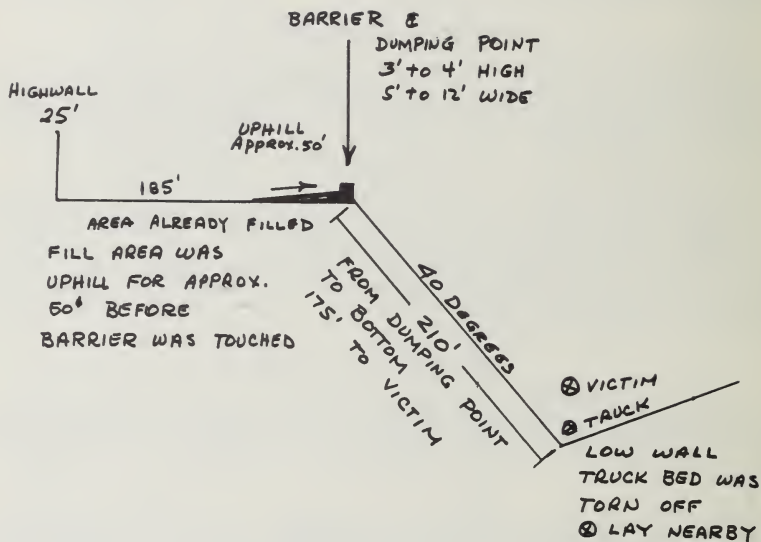 BARRIER &
DUMPING POINT
3' to 4' HIGH
5' to 12' WIDE
HIGHWALL
25'
UPHILL
APPROX. 50'
185'
AREA ALREADY FILLED
FILL AREA WAS
UPHILL FOR APPROX.
50' BEFORE
BARRIER WAS TOUCHED
40 DEGREES
210'
FROM DUMPING POINT
TO BOTTOM
175' TO VICTIM
⊗ VICTIM
⊗ TRUCK
LOW WALL
TRUCK BED WAS
TORN OFF
⊗ LAY NEARBY